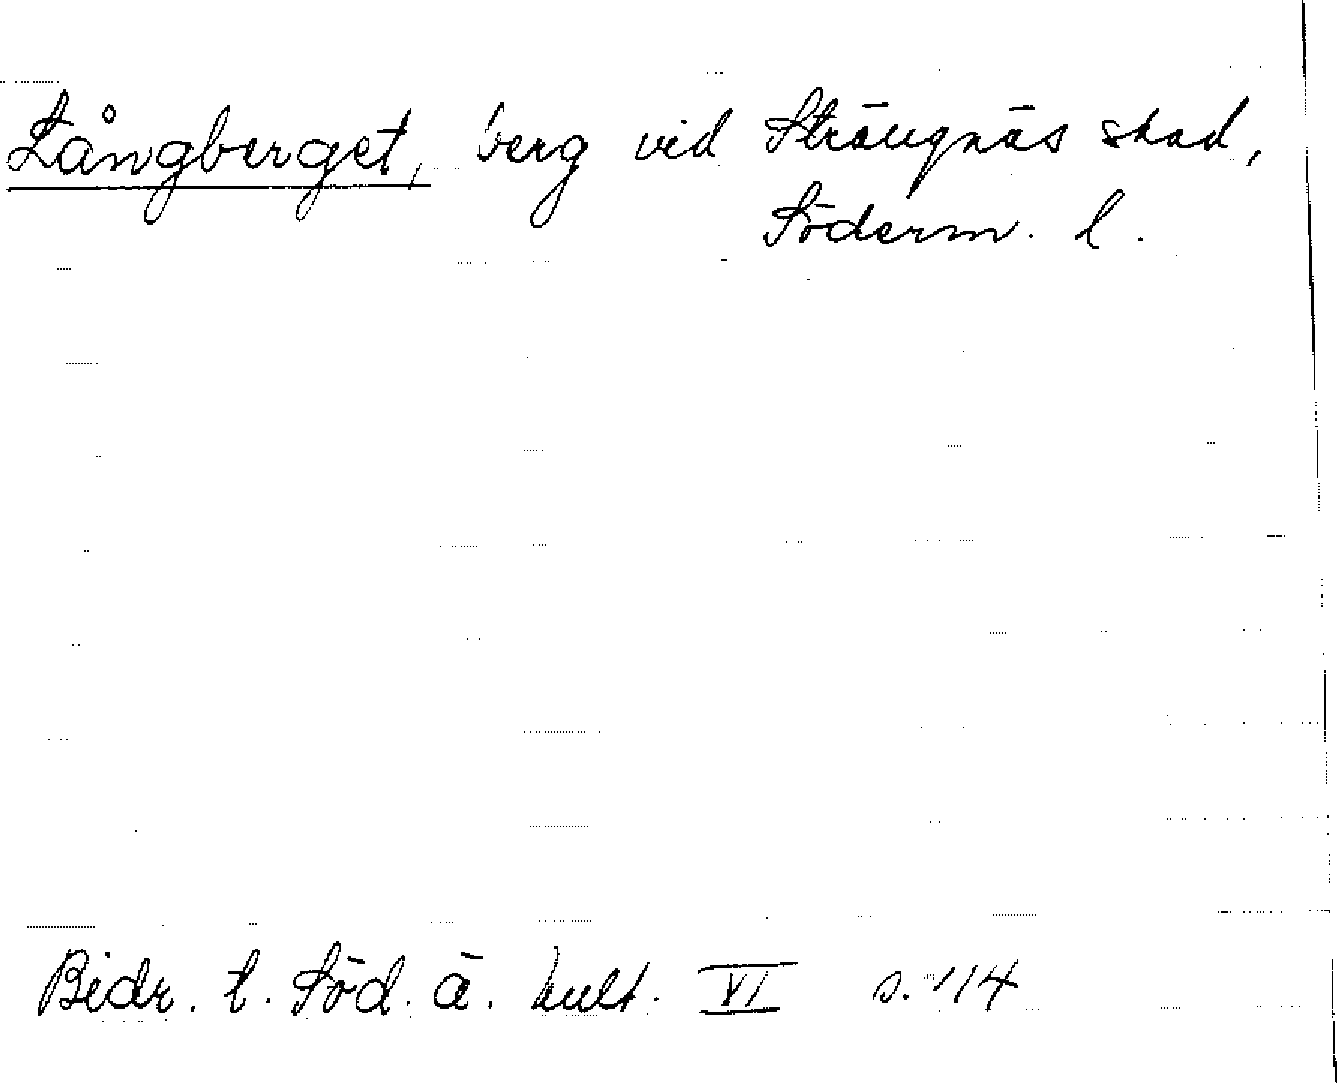 Långberget, berg vid Strängnäs stad,
Söderm. l.
Bidr. t. Söd. ä. kult. VI s. 114